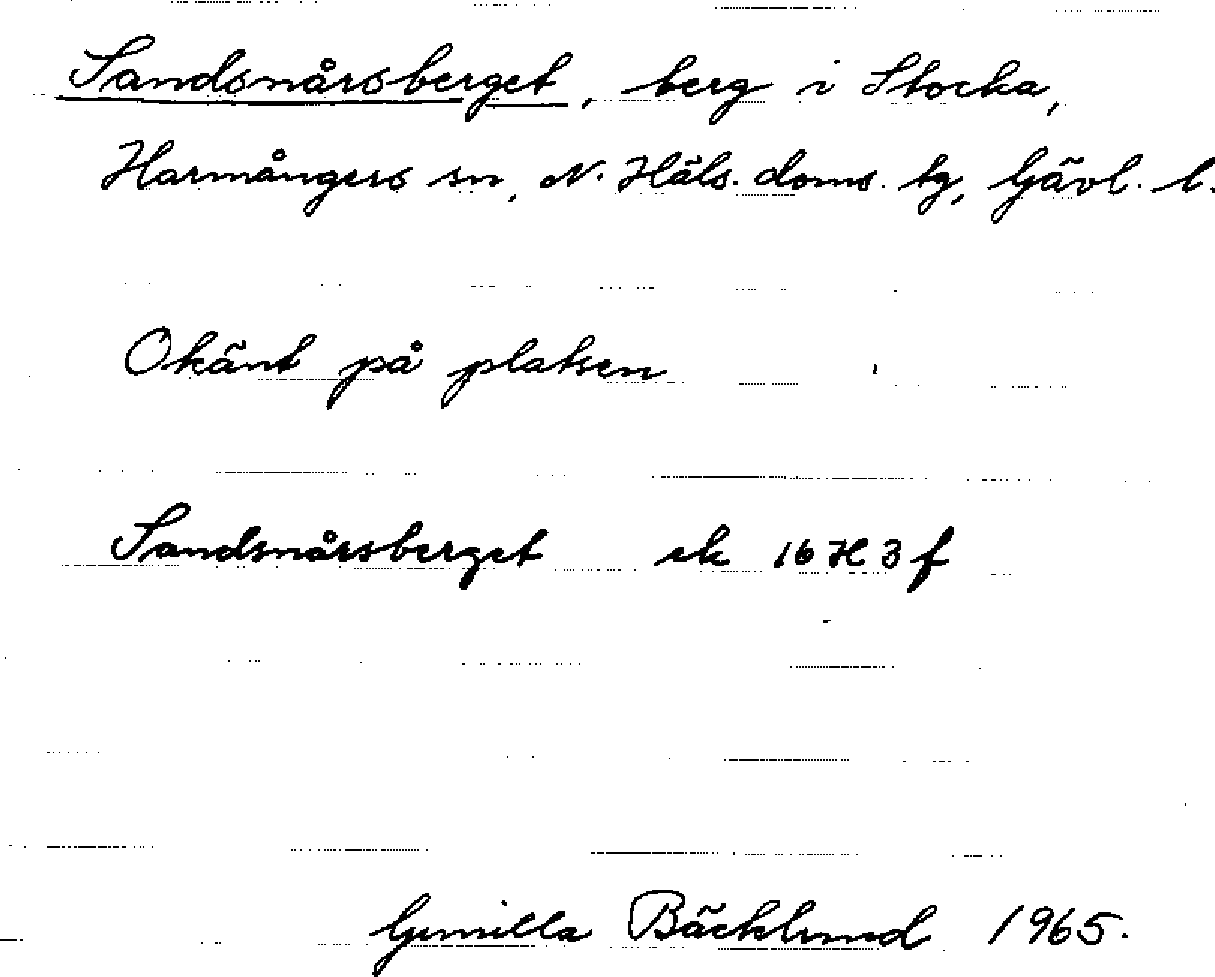 Sandsnårsberget, berg i Stocka,
Harmångers sn, N. Häls. doms. tg, Gävl. l.
Okänt på platsen
Sandsnårsberget ek 16 H 3 f
Gunilla Bäcklund 1965.